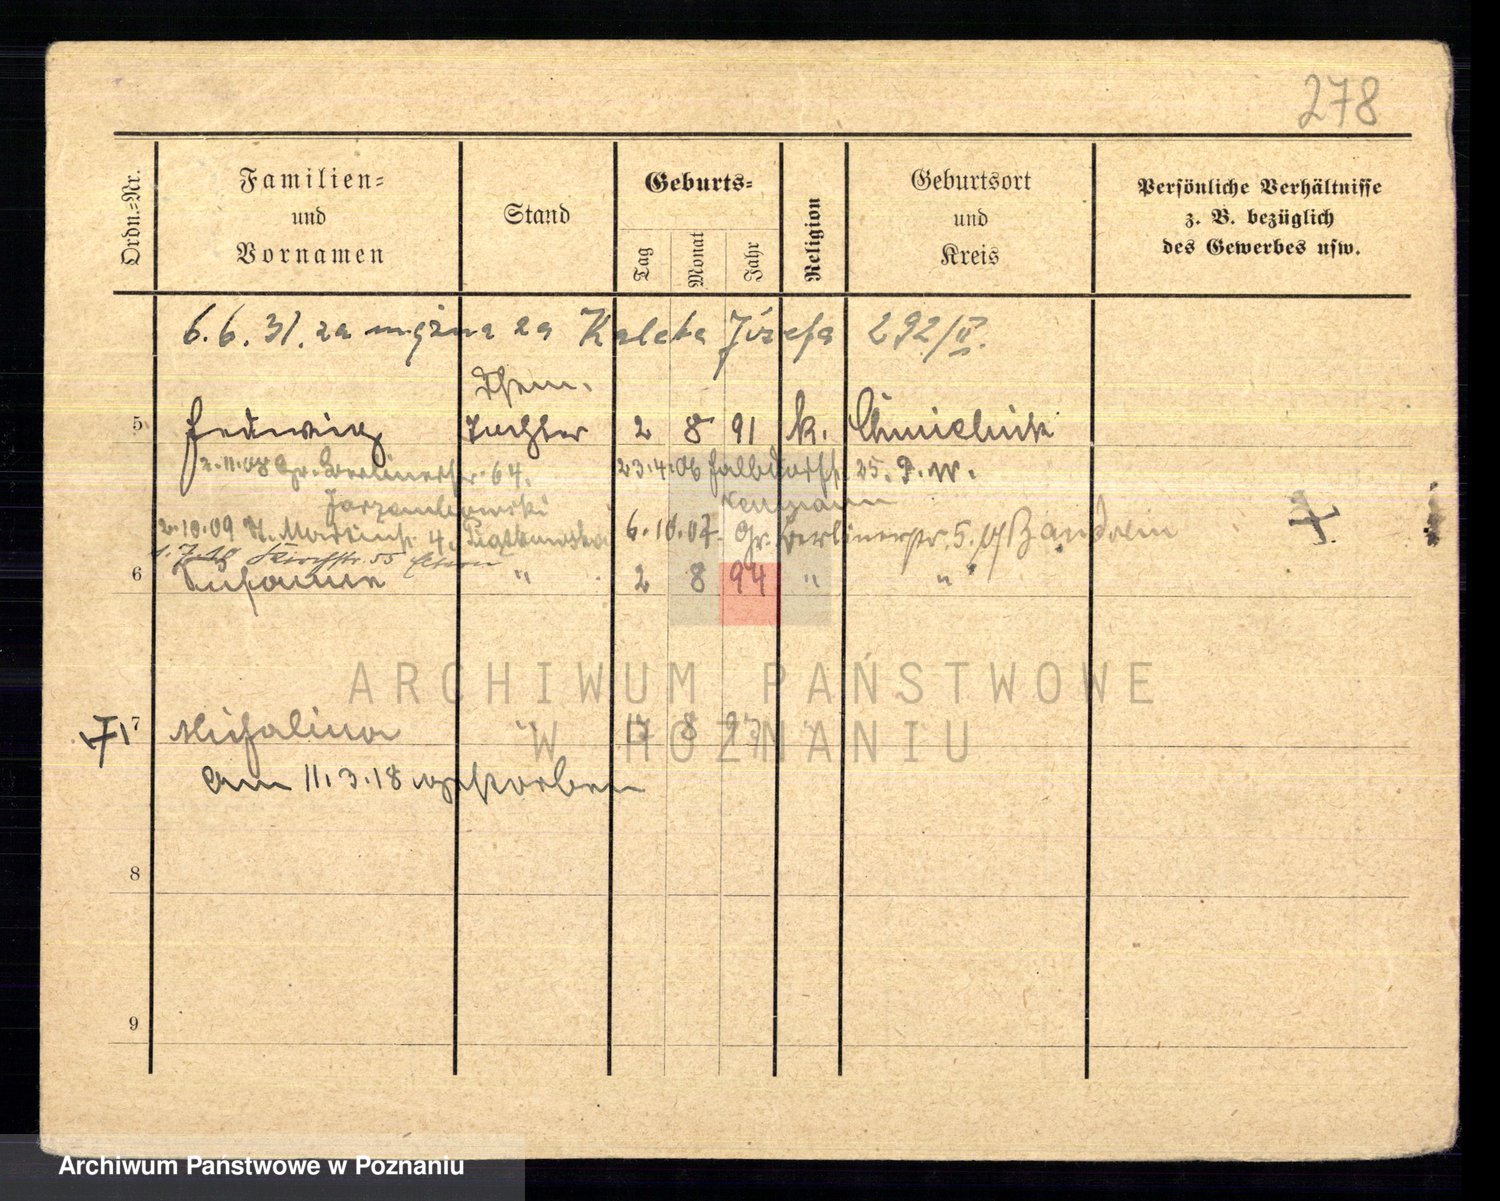 278
Ordn.-Nr.
Familien-
und
Vornamen
Stand
Geburts-
Tag
Monat
Jahr
Religion
Geburtsort
und
Kreis
Persönliche Verhältnisse
z. B. bezüglich
des Gewerbes usw.
6.6.31. za mężna za Kaleka Józefa 292/II.
5 Hedwig Tochter 2 8 91 k. Chmielnik
2.11.08 Gr. Berlinerstr. 64. 23.4.06 25. P. W.
2.10.09 St. Martinstr. 4. 6.10.07. Gr. Berlinerstr. 5.
1.7.10 Kirchstr. 55
6 Susanne " 2 8 94 " "
ARCHIWUM PAŃSTWOWE
7 Michalina " 17 8 97
W POZNANIU
am 11.3.18 verstorben
8
9
Archiwum Państwowe w Poznaniu